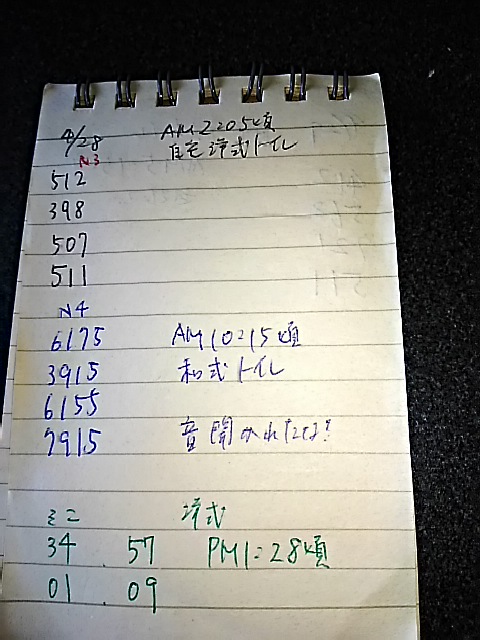 4/28 AM2:05頃
N3 自宅洋式トイレ
512
398
507
511
N4
6175 AM10:15頃
3915 和式トイレ
6155
7915 音聞かれたよ!
ミニ 洋式
34 57 PM1:28頃
01 . 09